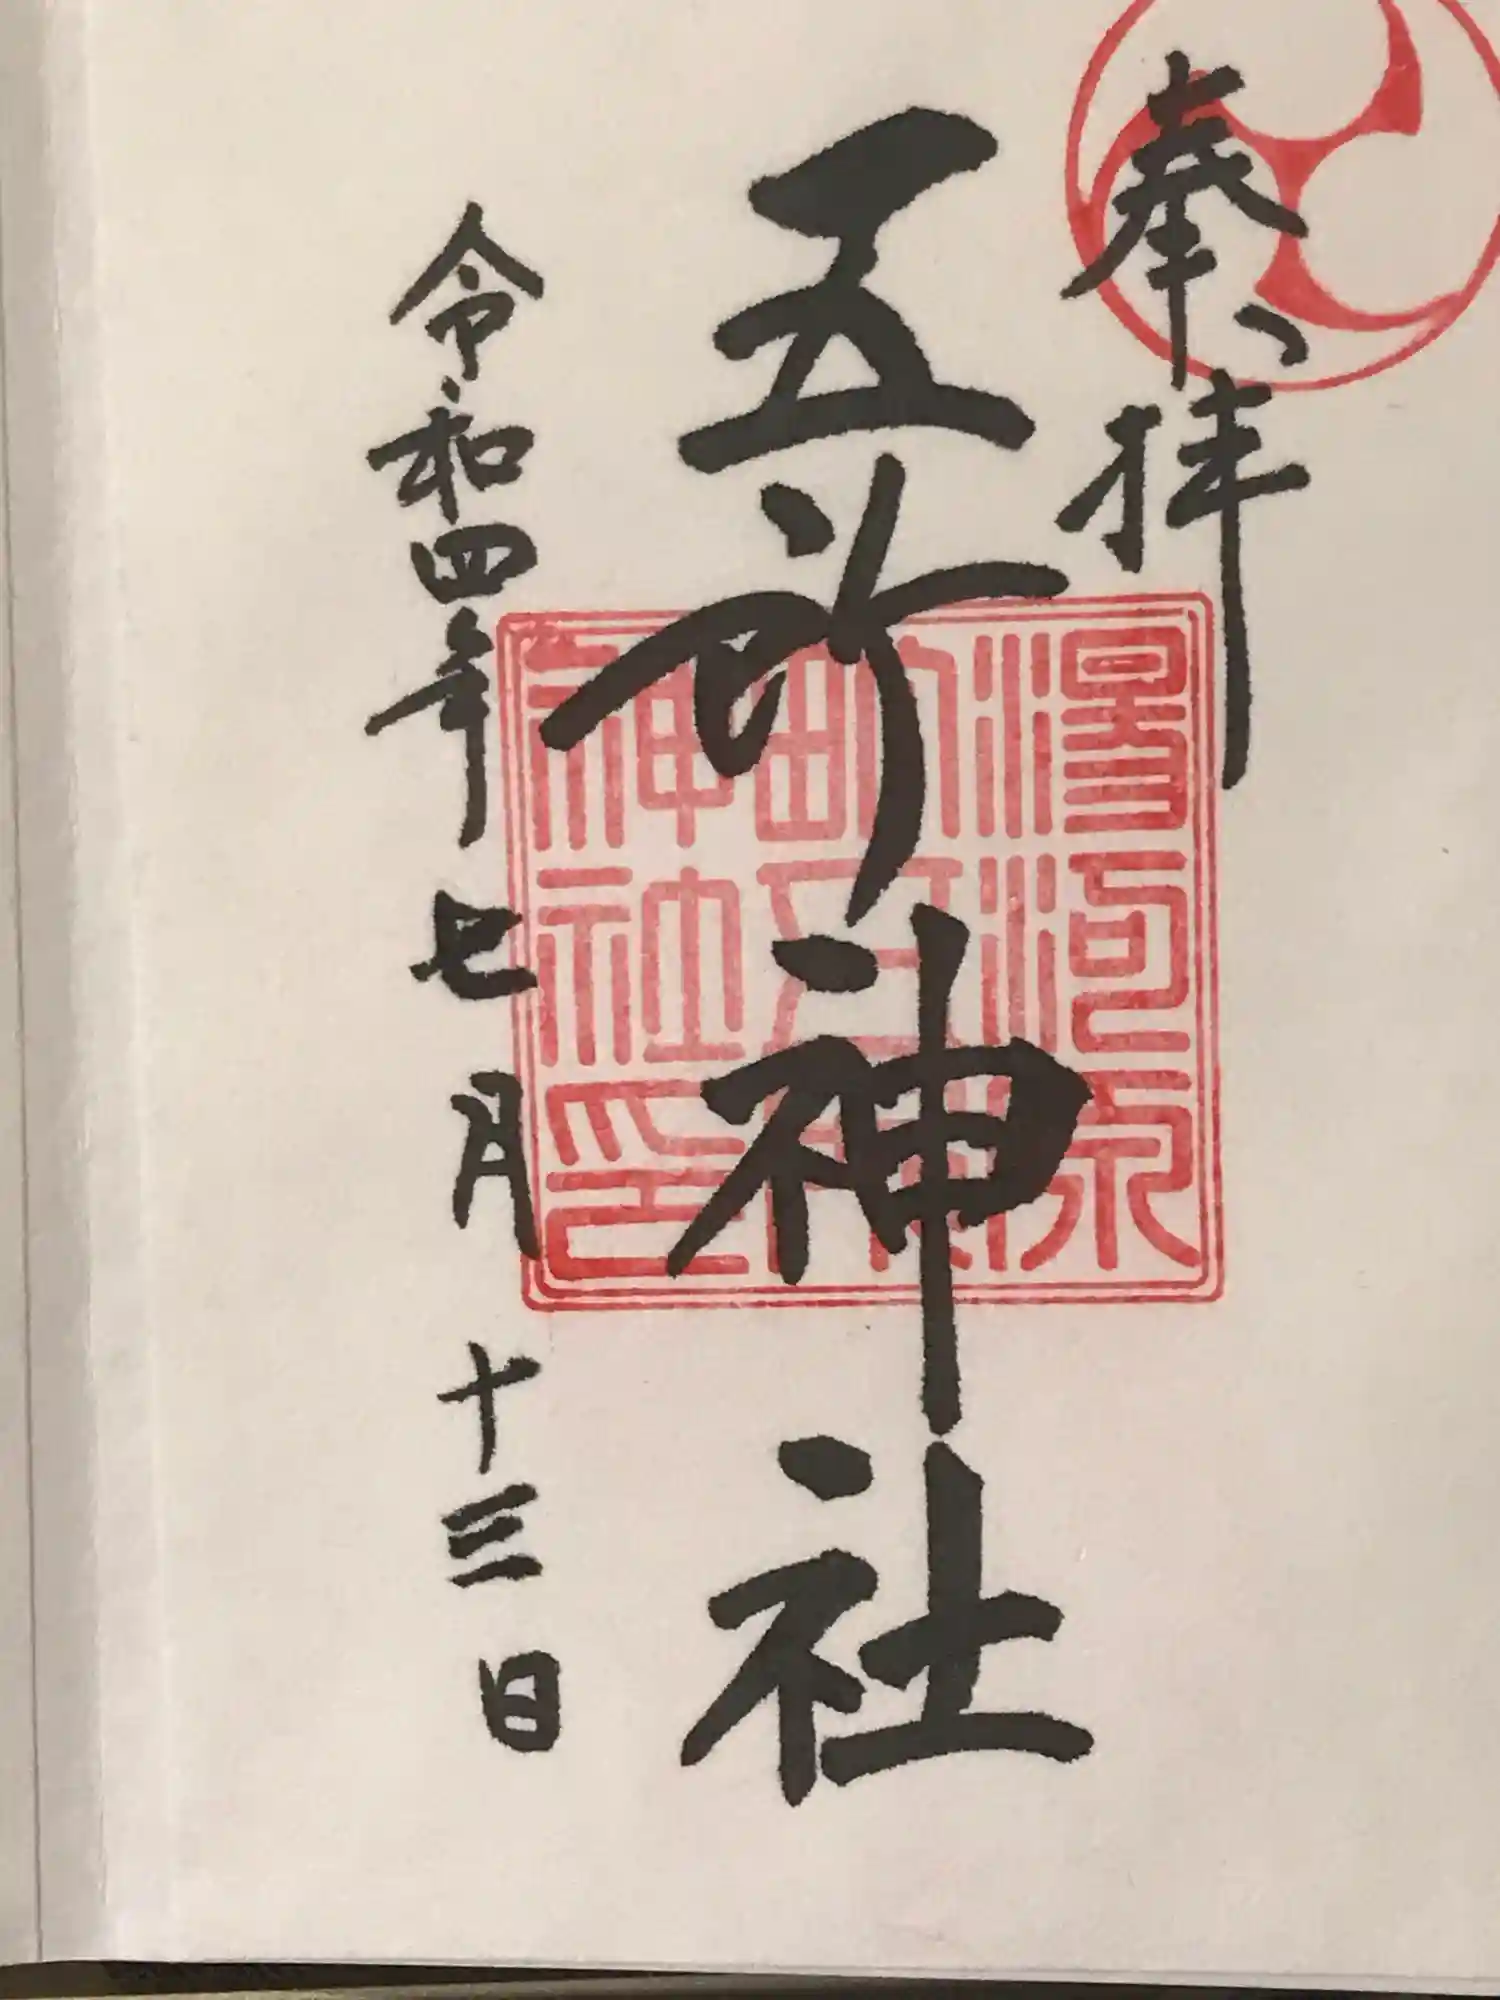 奉拝
五所神社
湯河原
町五所
神社印
令和四年七月十三日